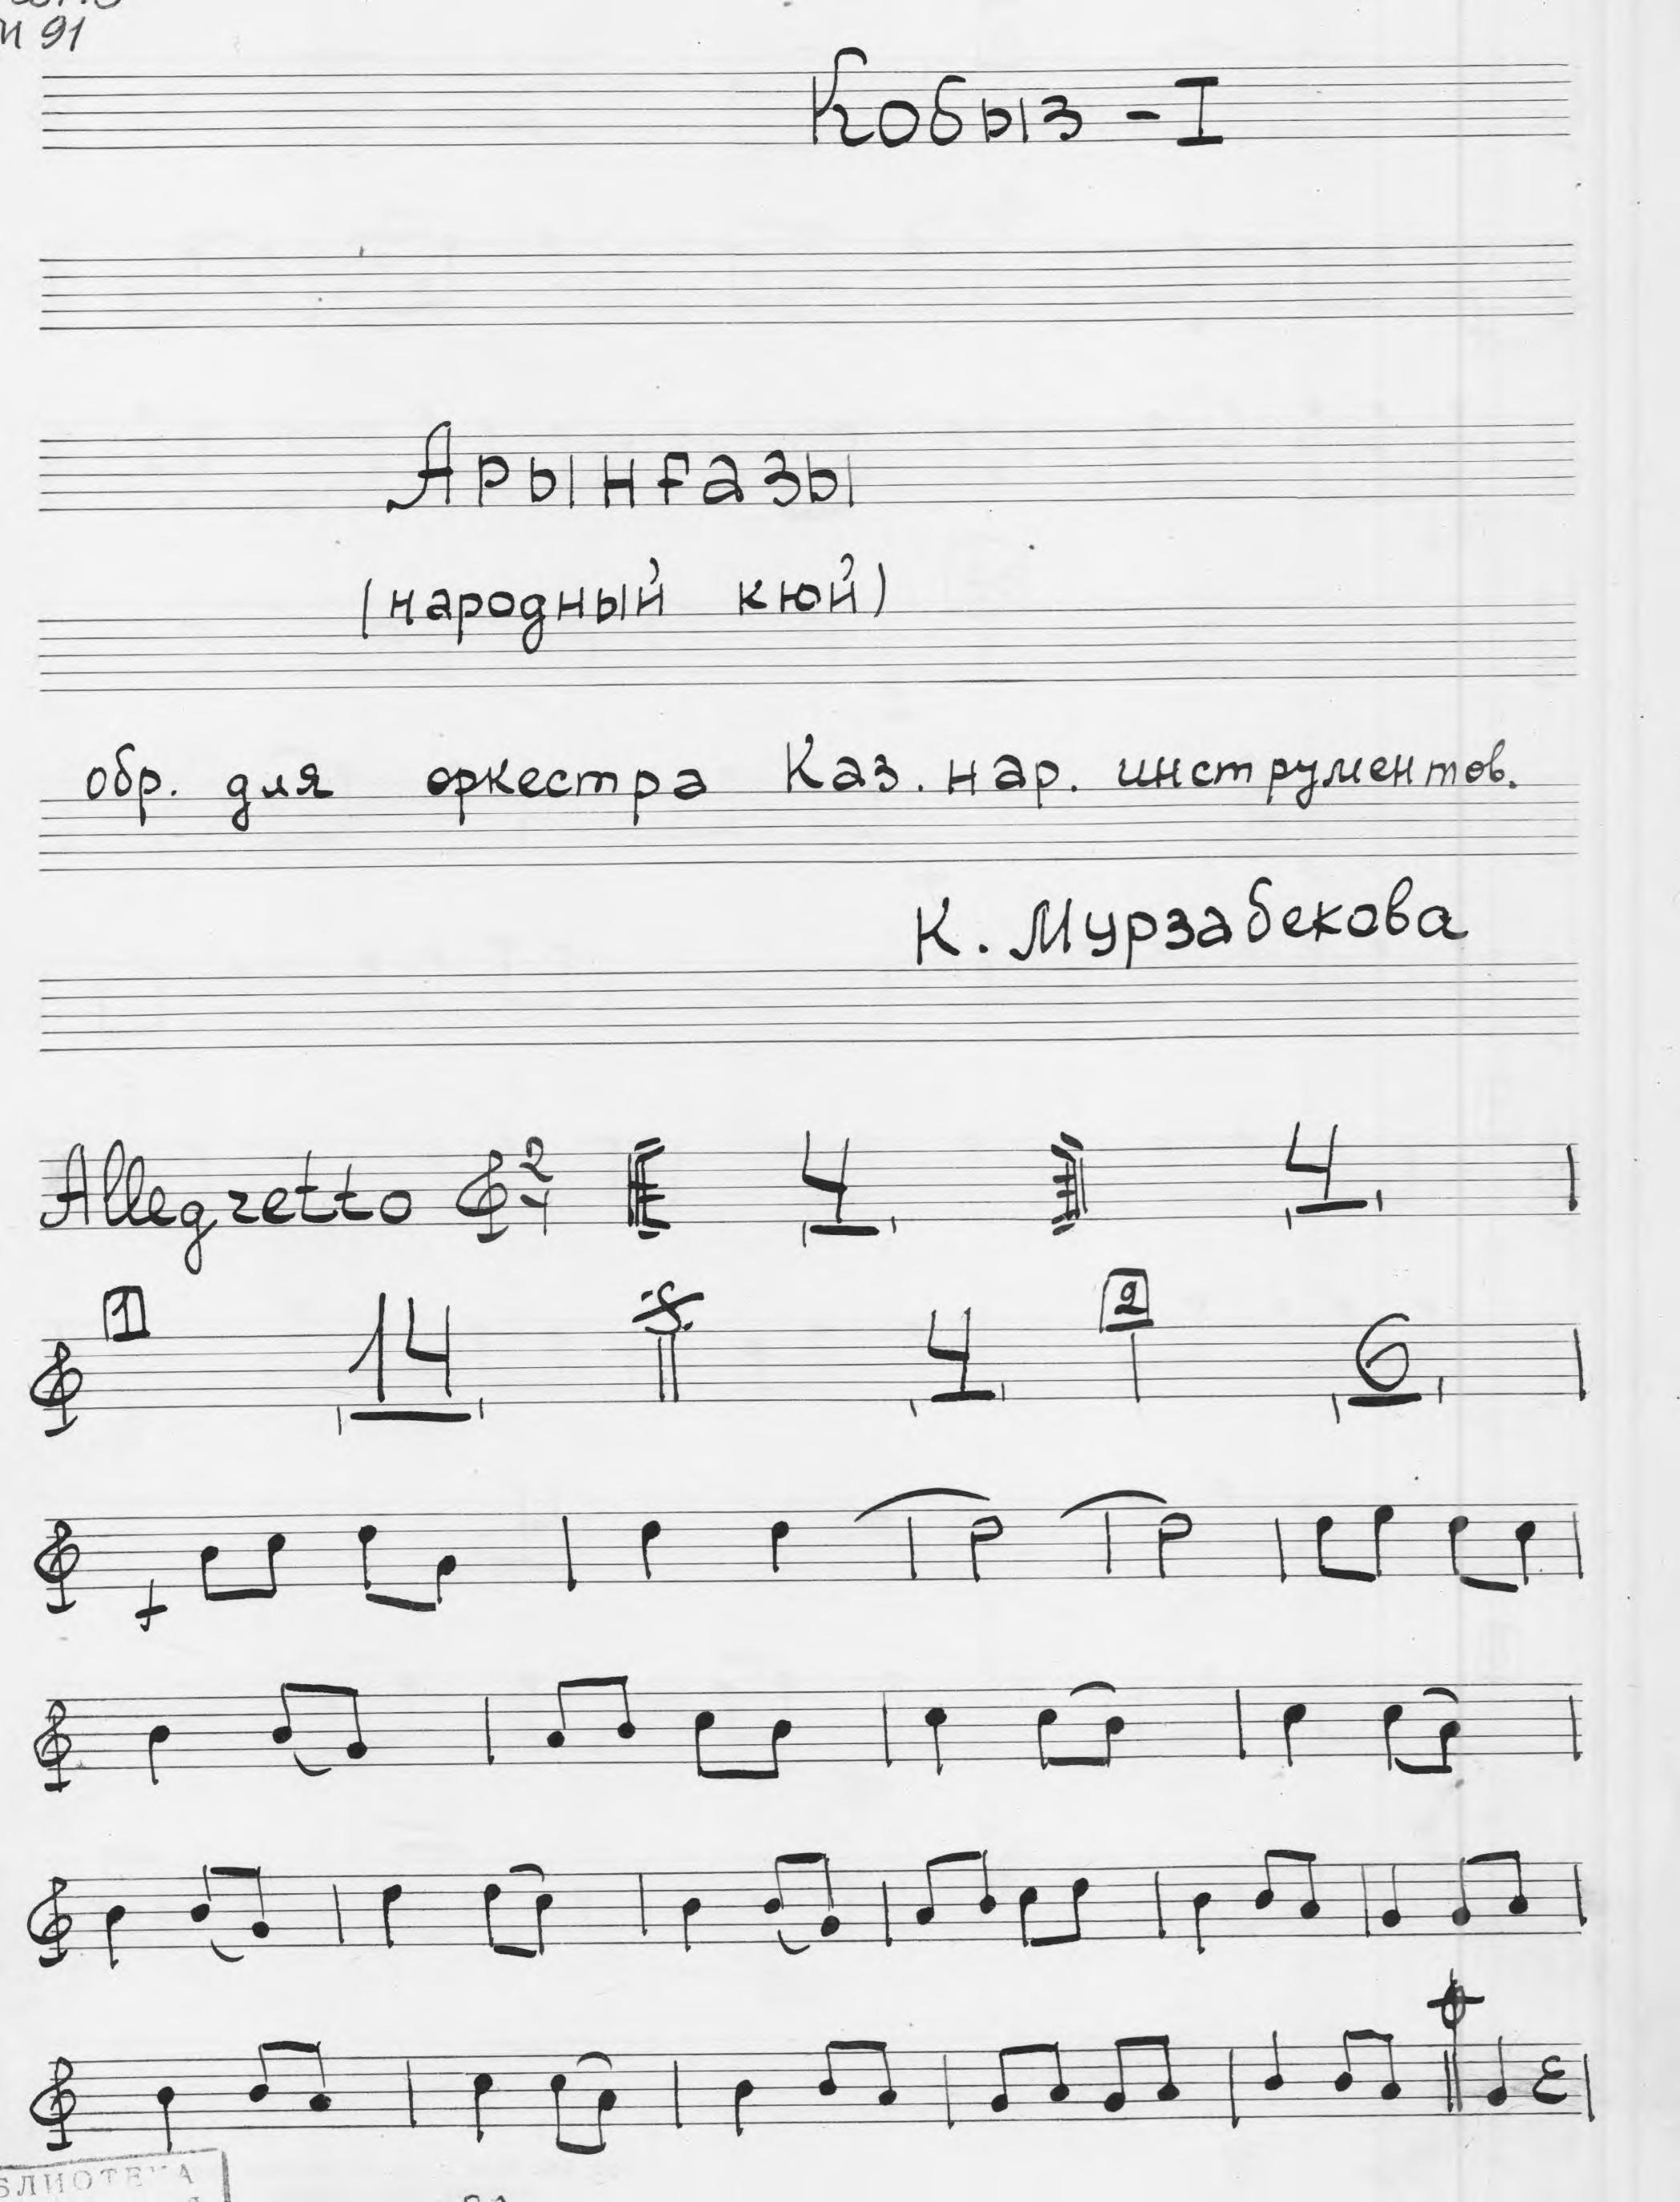 И 91
Кобыз - I
Арынғазы
(народный кюй)
обр. для оркестра Каз. нар. инструментов.
К. Мурзабекова
Allegretto 2/4 4 4
1 14 4 2 6
f